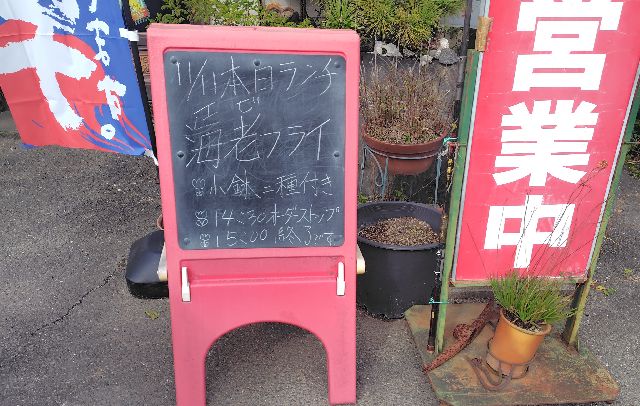 11/11本日ランチ
エビ
海老フライ
小鉢二種付き
14:30オーダーストップ
15:00 終了です
営業中